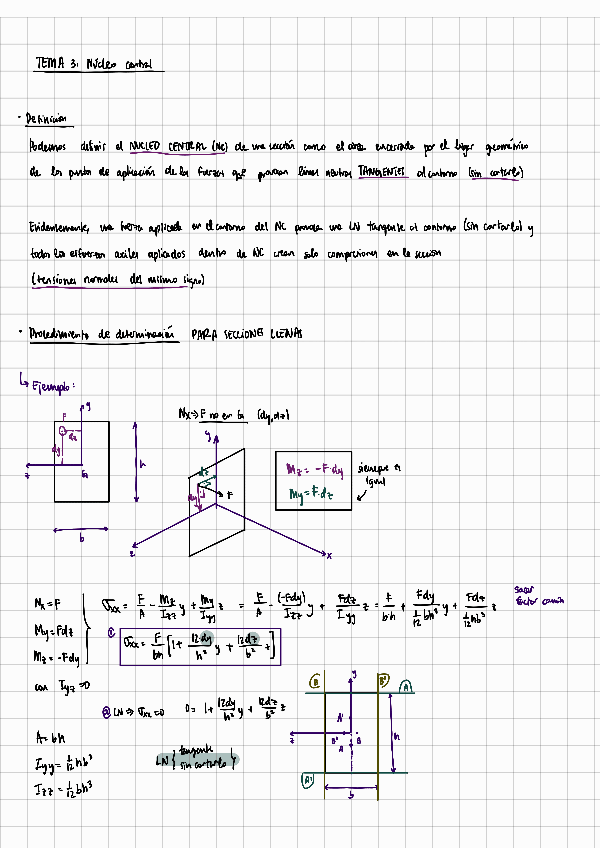 TEMA 3: Núcleo central
· Definición
Podemos definir el NUCLEO CENTRAL (NC) de una sección como el área encerrada por el lugar geométrico
de los puntos de aplicación de las fuerzas que provocan líneas neutras TANGENTES al contorno (sin cortarlo)
Evidentemente, una fuerza aplicada en el contorno del NC provoca una LN tangente al contorno (sin cortarlo) y
todos los esfuerzos axiles aplicados dentro de NC crean solo compresiones en la sección
(tensiones normales del mismo signo)
· Procedimiento de determinación PARA SECCIONES LLENAS
↳ Ejemplo:
Nx => F no en G (dy,dz)
F y
dz
dy
z G
h
b
y
dz
dy
F
z x
Mz = -F·dy
My = F·dz
siempre es
igual
Nx = F
My = Fdz
Mz = -Fdy
con Iyz = 0
σxx = F/A - Mz/Izz y + My/Iyy z = F/A - (-Fdy)/Izz y + Fdz/Iyy z = F/bh + Fdy/(1/12 bh³) y + Fdz/(1/12 hb³) z
sacar
factor común
① σxx = F/bh [1 + 12dy/h² y + 12dz/b² z]
② LN => σxx = 0 0 = 1 + 12dy/h² y + 12dz/b² z
A = bh
Iyy = 1/12 hb³
Izz = 1/12 bh³
LN { tangente
sin cortarlo }
B y B' A
A'
z B' B
A
h
A'
b